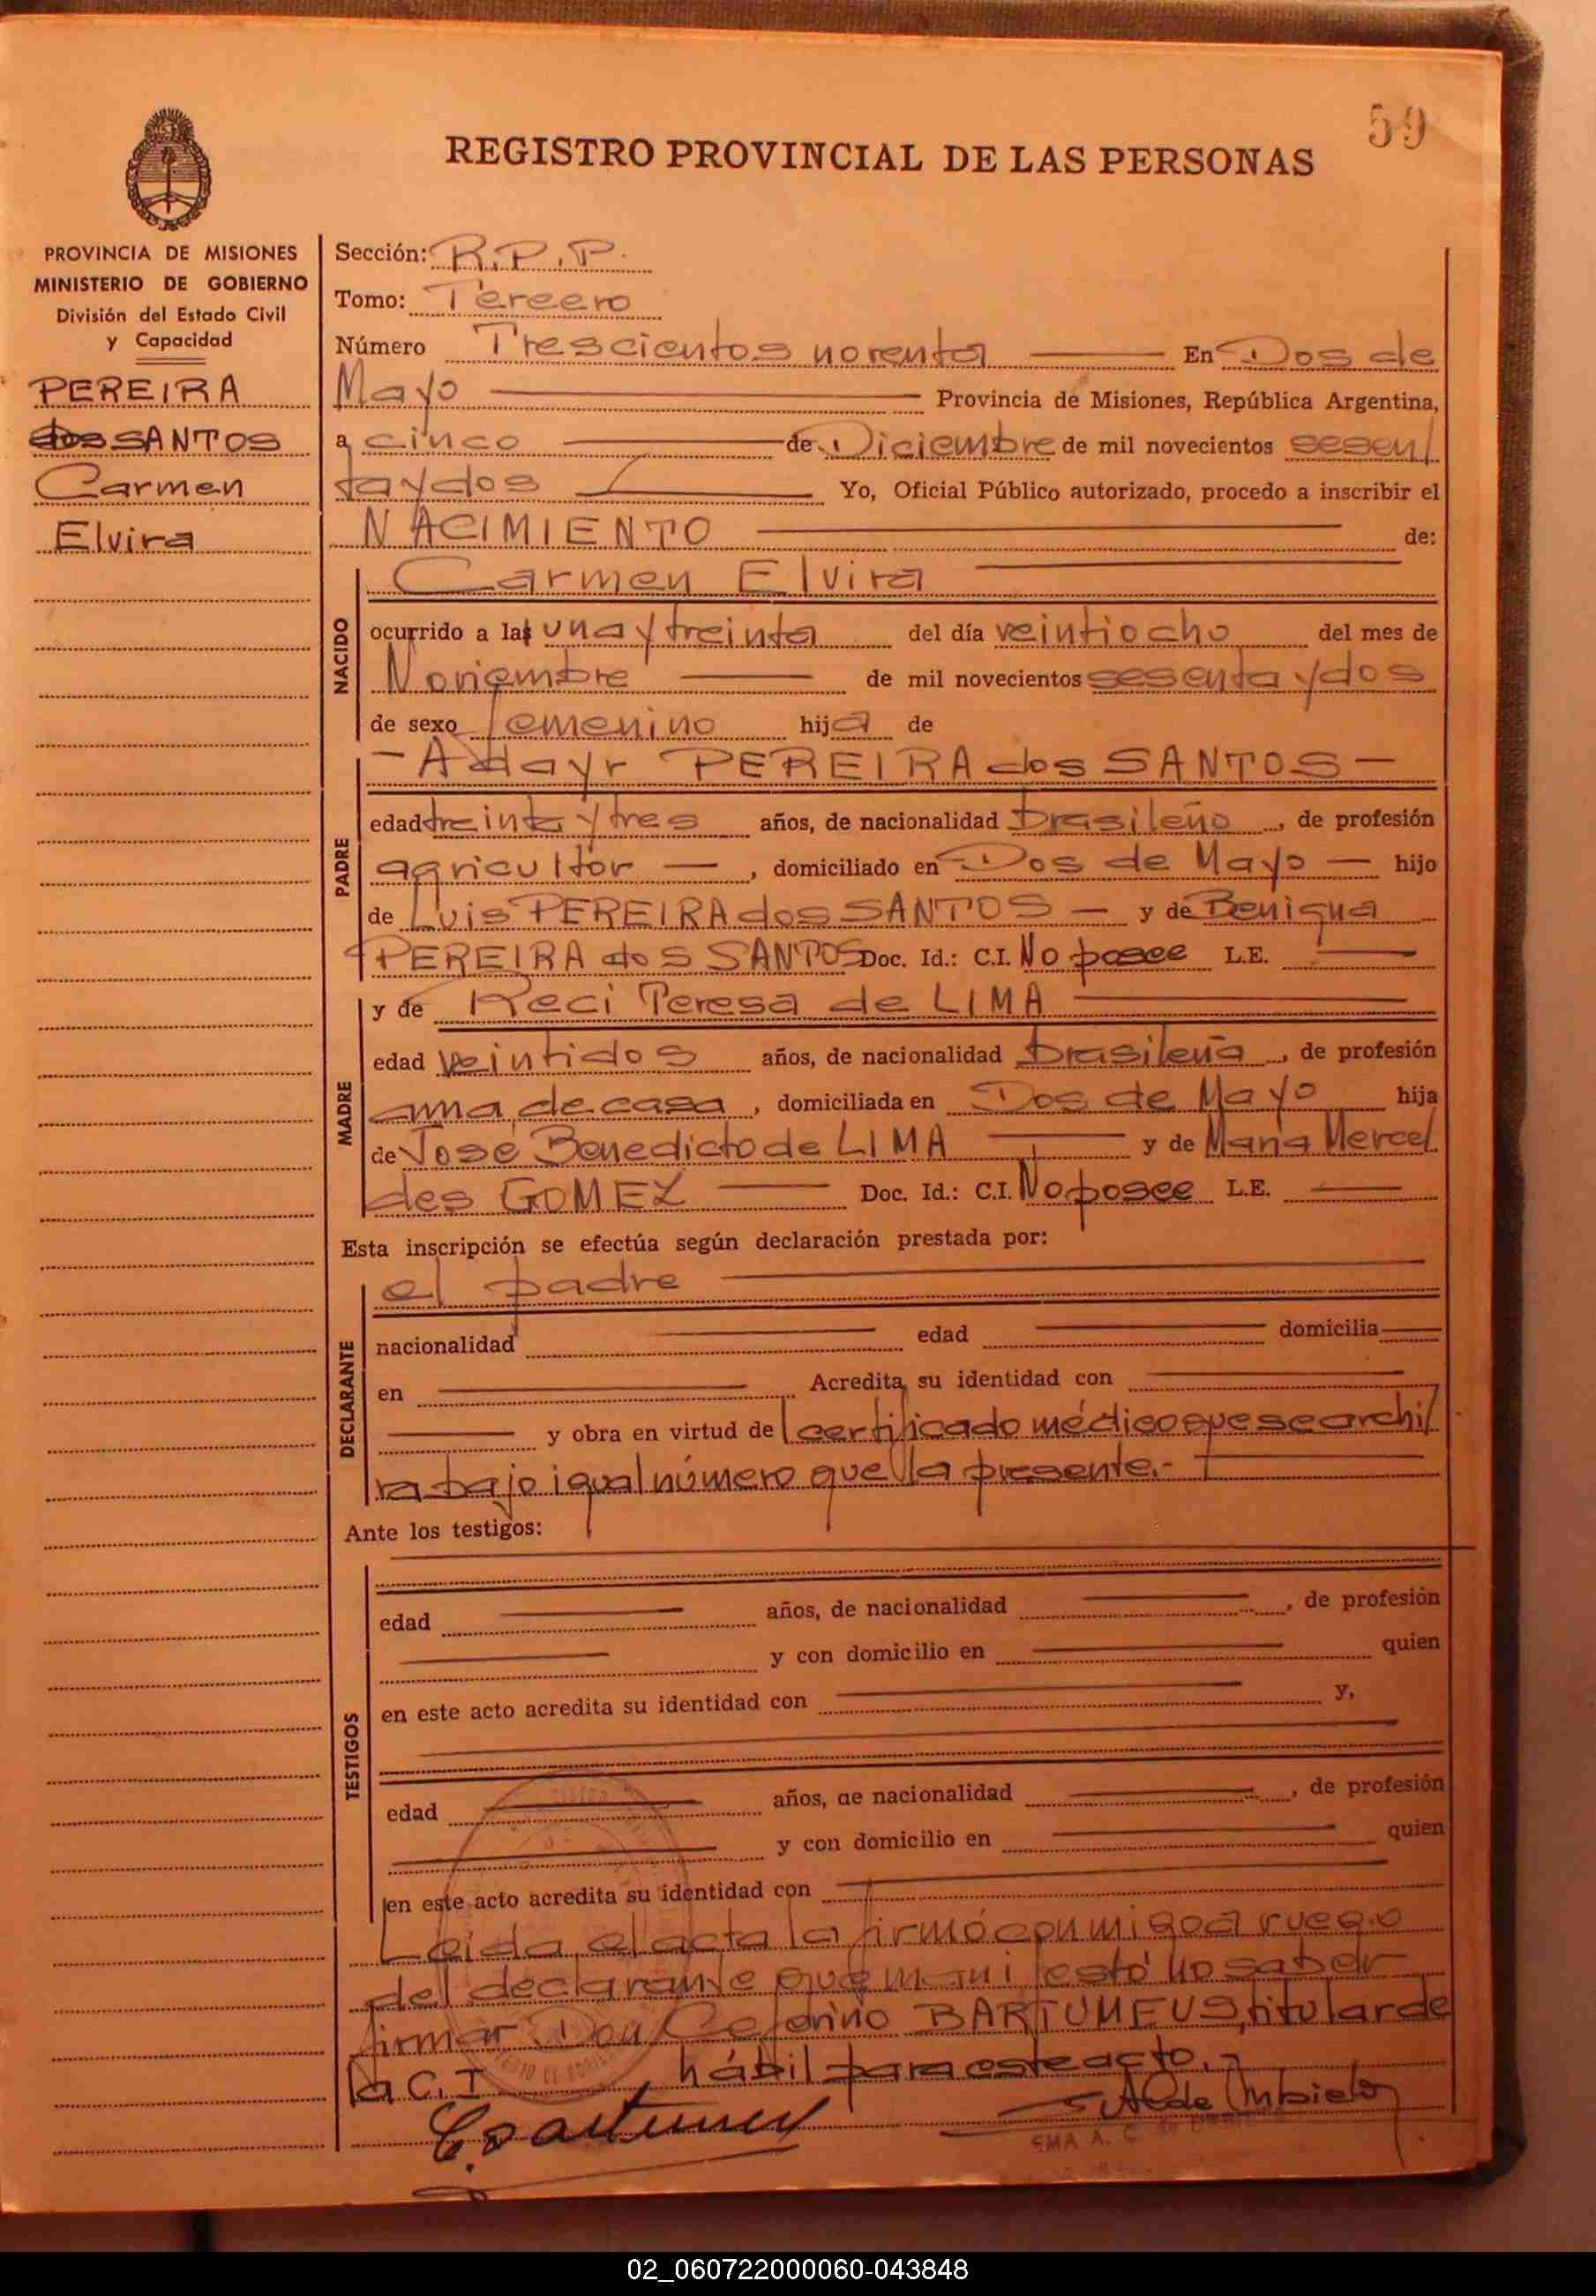 59
REGISTRO PROVINCIAL DE LAS PERSONAS
PROVINCIA DE MISIONES
MINISTERIO DE GOBIERNO
División del Estado Civil
y Capacidad
PEREIRA
dos SANTOS
Carmen
Elvira
Sección: R.P.P.
Tomo: Tercero
Número Trescientos noventa En Dos de
Mayo Provincia de Misiones, República Argentina,
a cinco de Diciembre de mil novecientos sesen/
taydos Yo, Oficial Público autorizado, procedo a inscribir el
NACIMIENTO de:
NACIDO
Carmen Elvira
ocurrido a las una y treinta del día veintiocho del mes de
Noviembre de mil novecientos sesenta y dos
de sexo femenino hija de
PADRE
- Adayr PEREIRA dos SANTOS -
edad treinta y tres años, de nacionalidad brasileño, de profesión
agricultor —, domiciliado en Dos de Mayo — hijo
de Luis PEREIRA dos SANTOS — y de Benigna
PEREIRA dos SANTOS Doc. Id.: C.I. No posee L.E.
MADRE
y de Reci Teresa de LIMA
edad veintidos años, de nacionalidad brasileña, de profesión
ama de casa, domiciliada en Dos de Mayo hija
de José Benedicto de LIMA y de Maria Merce/
des GOMEZ Doc. Id.: C.I. No posee L.E.
Esta inscripción se efectúa según declaración prestada por:
DECLARANTE
el padre
nacionalidad edad domicilia
en Acredita su identidad con
y obra en virtud de l certificado médico que se archi/
va bajo igual número que la presente.-
Ante los testigos:
TESTIGOS
edad años, de nacionalidad , de profesión
y con domicilio en quien
en este acto acredita su identidad con y,
edad años, de nacionalidad , de profesión
y con domicilio en quien
en este acto acredita su identidad con
Leida el acta la firmó conmigo a ruego
del declarante que manifestó no saber
firmar Don Ceferino BARTUMEUS, titular de
la C.I. hábil para este acto.-
02_060722000060-043848